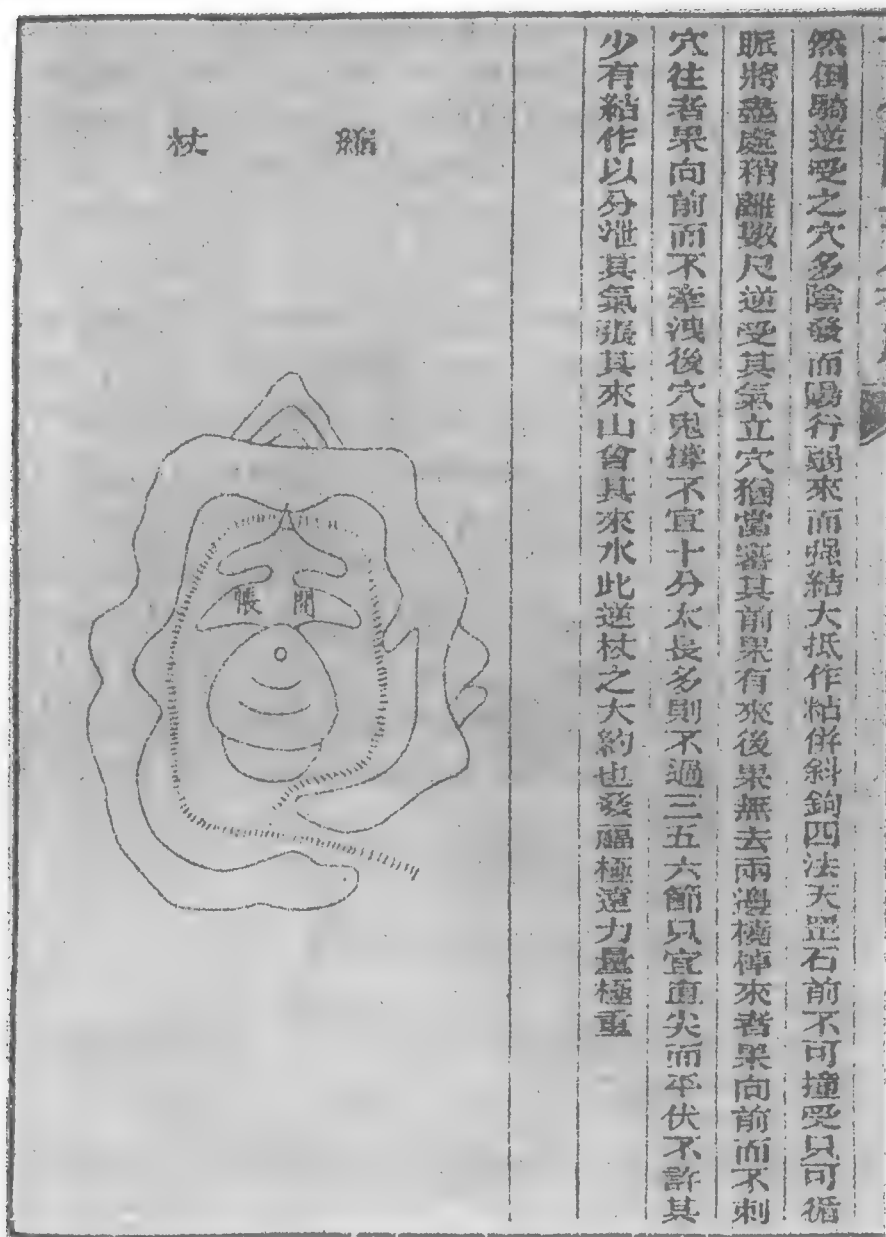 然倒騎逆受之穴多陰發而陽行弱來而强結大抵作粘倂斜鉤四法天罡石前不可撞受只可循
脈將盡處稍離數尺逆受其氣立穴猶當審其前果有來後果無去兩邊橈棹來者果向前而不刺
穴往者果向前而不牽洩後穴鬼撐不宜十分太長多則不過三五六節只宜直尖而平伏不許其
少有結作以分泄其氣張其來山會其來水此逆杖之大約也發福極遠力量極重
縮杖
開張